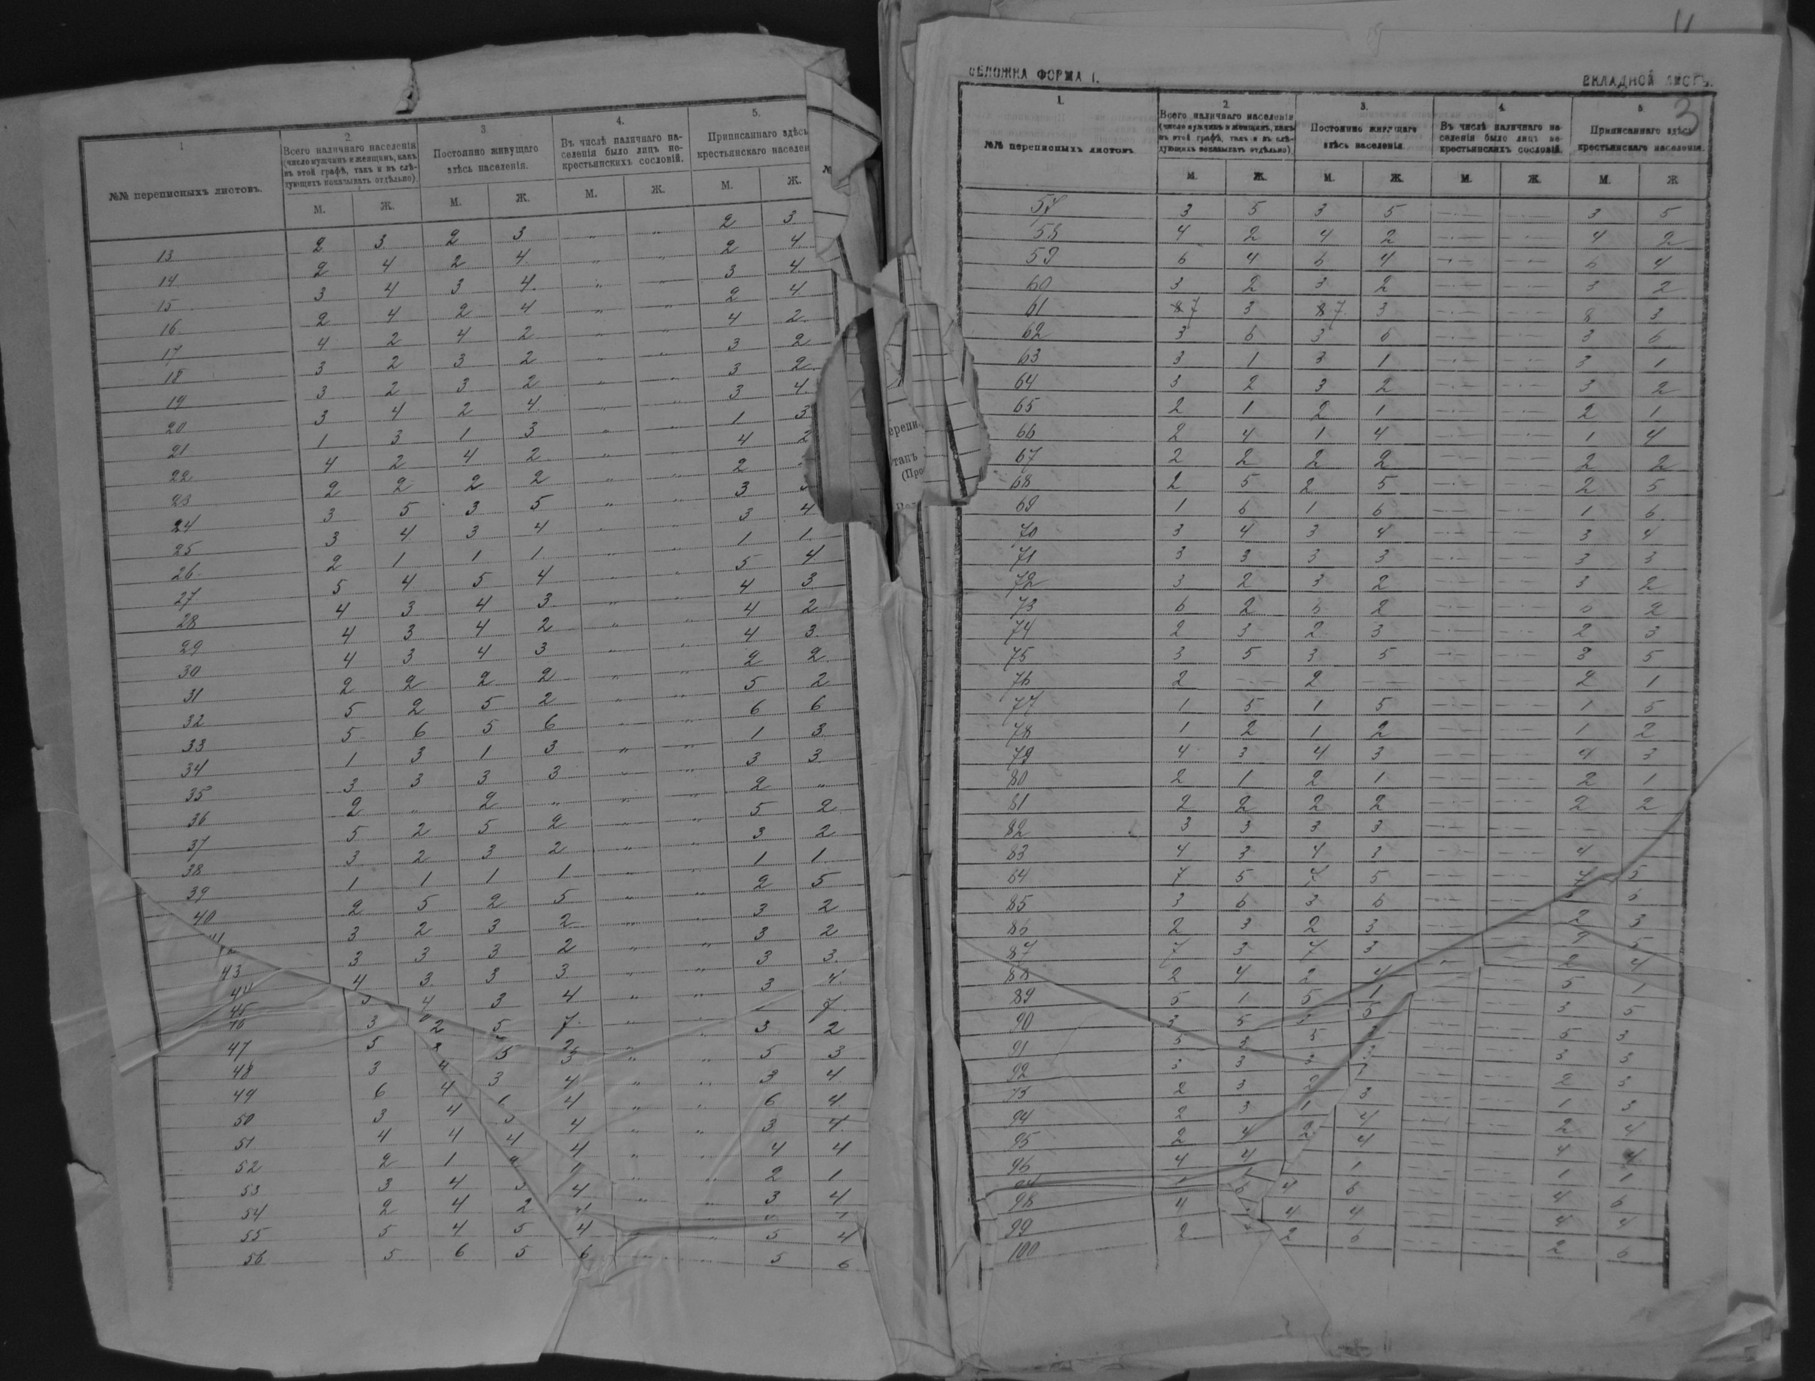 1
2
Всего наличнаго населенія
(число мужчинъ и женщинъ, какъ
въ этой графѣ, такъ и въ слѣ-
дующихъ показывать отдѣльно)
3
Постоянно живущаго
здѣсь населенія.
4.
Въ числѣ наличнаго на-
селенія было лицъ не-
крестьянскихъ сословій.
5.
Приписаннаго здѣсь
крестьянскаго населен
№№ переписныхъ листовъ.
М. Ж. М. Ж. М. Ж. М. Ж.
13 2 3 2 3 „ „ 2 3
14 2 4 2 4 „ „ 2 4
15 3 4 3 4 „ „ 3 4
16 2 4 2 4 „ „ 2 4
17 4 2 4 2 „ „ 4 2
18 3 2 3 2 „ „ 3 2
19 3 2 3 2 „ „ 3 2
20 3 4 2 4 „ „ 3 4
21 1 3 1 3 „ „ 1 3
22 4 2 4 2 „ „ 4 2
23 2 2 2 2 „ „ 2
24 3 5 3 5 „ „ 3
25 3 4 3 4 „ „ 3 4
26 2 1 1 1 „ „ 1 1
27 5 4 5 4 „ „ 5 4
28 4 3 4 3 „ „ 4 3
29 4 3 4 2 „ „ 4 2
30 4 3 4 3 „ „ 4 3
31 2 2 2 2 „ „ 2 2
32 5 2 5 2 „ „ 5 2
33 5 6 5 6 „ „ 6 6
34 1 3 1 3 „ „ 1 3
35 3 3 3 3 „ „ 3 3
36 2 „ 2 „ „ „ 2 „
37 5 2 5 2 „ „ 5 2
38 3 2 3 2 „ „ 3 2
39 1 1 1 1 „ „ 1 1
40 2 5 2 5 „ „ 2 5
3 2 3 2 „ „ 3 2
3 3 3 2 „ „ 3 2
43 4 3 3 3 „ „ 3 3
44 3 4 3 4 „ „ 3 4
45 7 7
46 3 2 3 2
47 5 5 3 „ „ 5 3
48 3 3 4 „ „ 3 4
49 6 4 6 4 „ „ 6 4
50 3 4 3 4 „ „ 3 4
51 4 4 4 4 „ „ 4 4
52 2 1 2 „ „ 2 1
53 3 4 3 4 „ „ 3 4
54 2 4 2
55 5 4 5 4 5 4
56 5 6 5 6 5 6
ерепи
такъ
(Про
ОБЛОЖКА ФОРМА I.
ВКЛАДНОЙ ЛИСТЪ.
3
1.
№№ переписныхъ листовъ.
2
Всего наличнаго населенія
(число мужчинъ и женщинъ, какъ
въ этой графѣ, такъ и въ слѣ-
дующихъ показывать отдѣльно)
3.
Постоянно живущаго
здѣсь населенія.
4
Въ числѣ наличнаго на-
селенія было лицъ не-
крестьянскихъ сословій.
5
Приписаннаго здѣсь
крестьянскаго населенія
М. Ж. М. Ж. М. Ж. М. Ж
57 3 5 3 5 — — 3 5
58 4 2 4 2 — — 4 2
59 6 4 6 4 — — 6 4
60 3 2 3 2 — — 3 2
61 8 7 3 8 7 3 — — 8 3
62 3 6 3 6 — — 3 6
63 3 1 3 1 — — 3 1
64 3 2 3 2 — — 3 2
65 2 1 2 1 — — 2 1
66 2 4 1 4 — — 1 4
67 2 2 2 2 — — 2 2
68 2 5 2 5 — — 2 5
69 1 6 1 6 — — 1 6
70 3 4 3 4 — — 3 4
71 3 3 3 3 — — 3 3
72 3 2 3 2 — — 3 2
73 6 2 6 2 — — 6 2
74 2 3 2 3 — — 2 3
75 3 5 3 5 — — 3 5
76 2 — 2 — — — 2 1
77 1 5 1 5 — — 1 5
78 1 2 1 2 — — 1 2
79 4 3 4 3 — — 4 3
80 2 1 2 1 — — 2 1
81 2 2 2 2 — — 2 2
82 3 3 3 3 — — — —
83 4 3 4 3 — — 4
84 7 5 7 5 — — 7 5
85 3 6 3 6 — — 6
86 2 3 2 3 — — 2 3
87 7 3 7 3 — —
88 2 4 2 4 — — 2 4
89 5 1 5 1 — — 5 1
90 3 5 3 5 — — 3 5
91 5 3 5 3 — — 5 3
92 3 3 3 3 — — 3 3
2 3 2 — — 2 3
94 2 3 1 3 — — 1 3
95 2 4 2 4 — — 2 4
96 4 4 4 — — 4 4
1 — — 1 1
98 4 6 4 6 — — 4 6
99 4 4 — — 4 4
100 2 2 6 — — 2 6